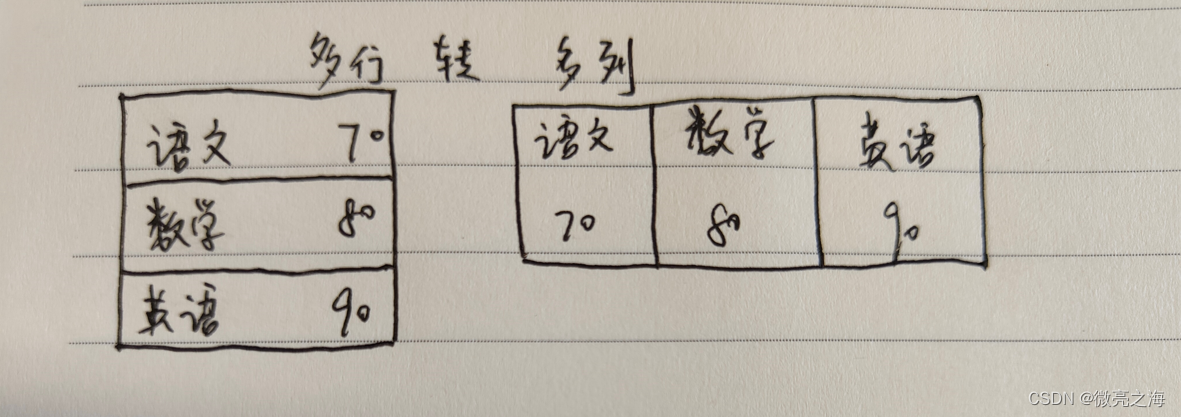 多行 转 多列
语文 70
数学 80
英语 90
语文 数学 英语
70 80 90
CSDN @微亮之海